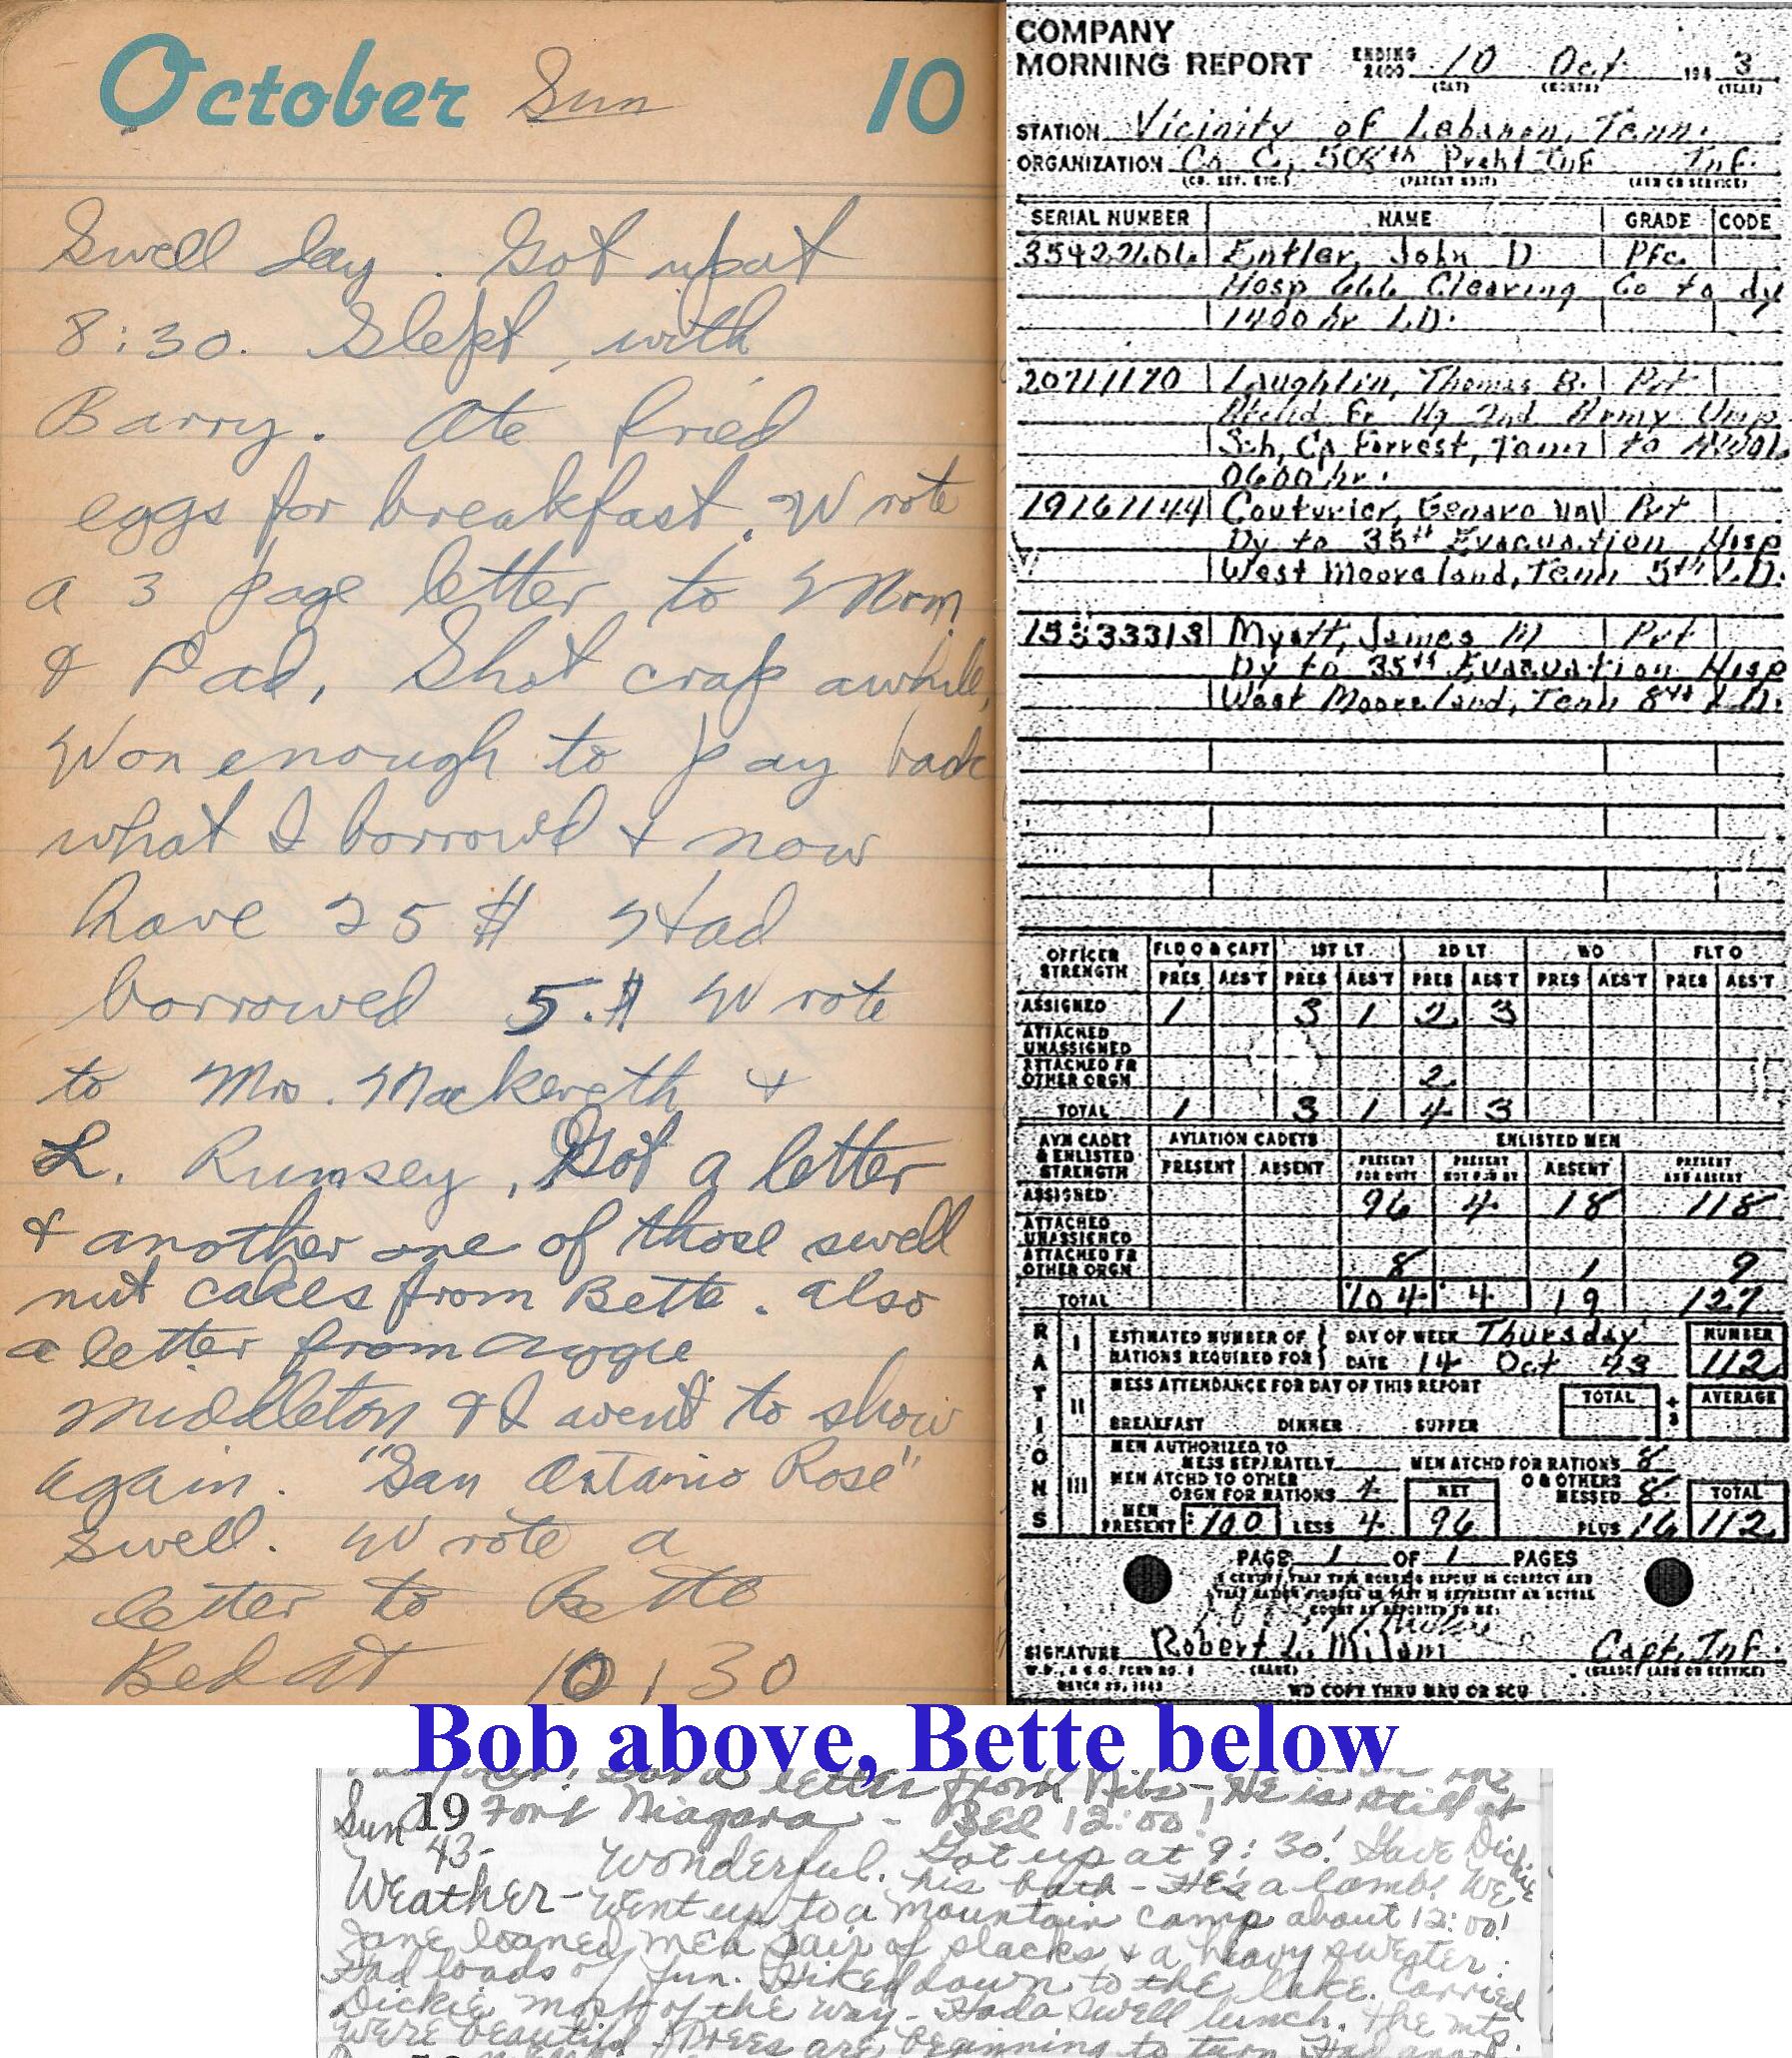 October Sun 10
Swell day. Got up at
8:30. Slept with
Barry. Ate fried
eggs for breakfast. Wrote
a 3 page letter to Mom
& Dad. Shot crap awhile,
Won enough to pay back
what I borrowd & now
have 25 $ Had
borrowed 5.$ Wrote
to Mrs. Mackereth &
L. Rumsey, Got a letter
& another one of those swell
nut cakes from Bette. also
a letter from Aggie
Middleton & I went to show
again. "San Antanio Rose"
swell. Wrote a
letter to Bette
Bed at 10:30
COMPANY
MORNING REPORT ENDING 2400 10 Oct 194 3
(DAY) (MONTH) (YEAR)
STATION Vicinity of Lebanon, Tenn.
ORGANIZATION Co C, 508th Prcht Inf Inf.
(CO. DET. ETC.) (PARENT UNIT) (ARM OR SERVICE)
SERIAL NUMBER NAME GRADE CODE
35422606 Entler, John D Pfc
Hosp 666 Clearing Co to dy
1400 hr LD.
20711170 Laughlin, Thomas B. Pvt
Hq 2nd Army
Sch, Cp Forrest, Tenn to AWOL
0600 hr.
19161144 Couturier, Genaro Pvt
Dy to 35th Evacuation Hosp
West Mooreland, Tenn 5th L.D.
15333313 Myatt, James M Pvt
Dy to 35th Evacuation Hosp
West Mooreland, Tenn 8th L.D.
OFFICER STRENGTH FLD O & CAPT 1ST LT 2D LT WO FLT O
PRES ABS'T PRES ABS'T PRES ABS'T PRES ABS'T PRES ABS'T
ASSIGNED 1 3 1 2 3
ATTACHED UNASSIGNED
ATTACHED FR OTHER ORGN 2
TOTAL 1 3 1 4 3
AVN CADET & ENLISTED STRENGTH AVIATION CADETS ENLISTED MEN
PRESENT ABSENT PRESENT FOR DUTY PRESENT NOT FOR DY ABSENT PRESENT AND ABSENT
ASSIGNED 96 4 18 118
ATTACHED UNASSIGNED
ATTACHED FR OTHER ORGN 8 1 9
TOTAL 104 4 19 127
RATIONS
I ESTIMATED NUMBER OF RATIONS REQUIRED FOR DAY OF WEEK Thursday NUMBER
DATE 14 Oct 43 112
II MESS ATTENDANCE FOR DAY OF THIS REPORT TOTAL ÷ 3 AVERAGE
BREAKFAST DINNER SUPPER
III MEN AUTHORIZED TO MESS SEPARATELY MEN ATCHD FOR RATIONS 8
MEN ATCHD TO OTHER ORGN FOR RATIONS 4 NET O & OTHERS MESSED 8 TOTAL
MEN PRESENT 100 LESS 4 96 PLUS 16 112
PAGE 1 OF 1 PAGES
I CERTIFY THAT THIS MORNING REPORT IS CORRECT AND
SIGNATURE Robert L. Milam Capt, Inf.
W.D., A.G.O. FORM NO. 1 (NAME) (GRADE) (ARM OR SERVICE)
WD COPY THRU MRU OR SCU
Bob above, Bette below
letter from Nibs - He is still at
Sun 19 Fort Niagara - Bed 12:00!
43- Wonderful. Got up at 9:30! Gave Dickie
Weather - his bath - He's a lamb! We
went up to a mountain camp about 12:00!
Jane loaned me a pair of slacks & a heavy sweater.
Had loads of fun. Hiked down to the lake. Carried
Dickie most of the way - Had a swell lunch. The mts.
were beautiful. Trees are beginning to turn.